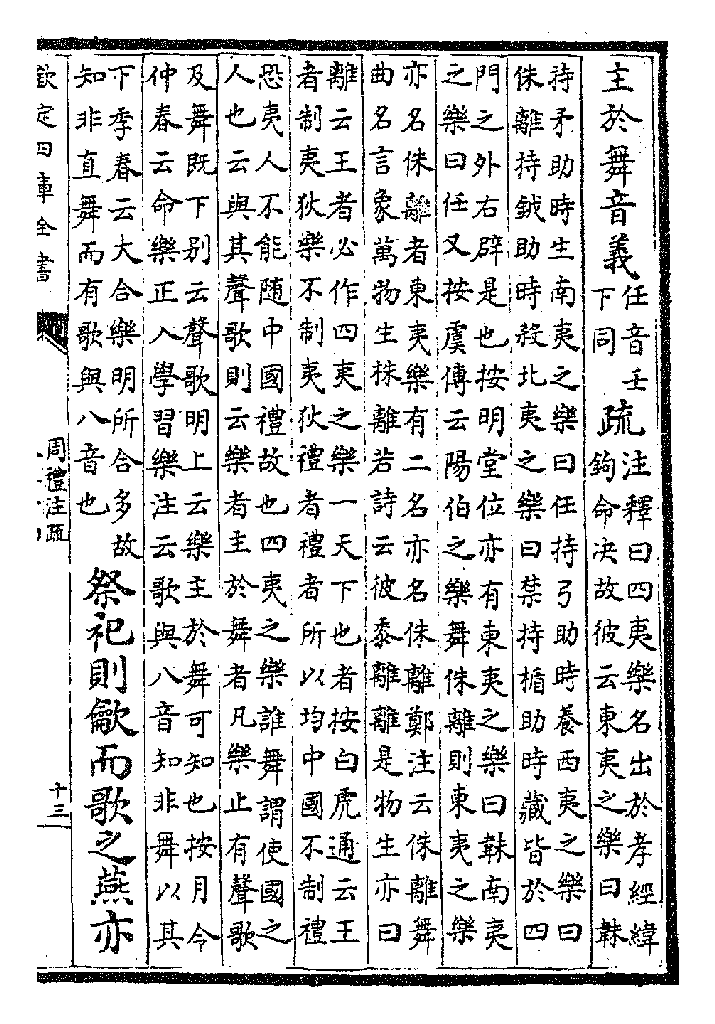 主於舞音義
任音壬
下同
疏
注釋曰四夷樂名出於孝經緯
鉤命决故彼云東夷之樂曰韎
持矛助時生南夷之樂曰任持弓助時養西夷之樂曰
侏離持鉞助時殺北夷之樂曰禁持楯助時藏皆於四
門之外右辟是也按明堂位亦有東夷之樂曰韎南夷
之樂曰任又按虞傳云陽伯之樂舞侏離則東夷之樂
亦名侏離者東夷樂有二名亦名侏離鄭注云侏離舞
曲名言象萬物生株離若詩云彼黍離離是物生亦曰
離云王者必作四夷之樂一天下也者按白虎通云王
者制夷狄樂不制夷狄禮者禮者所以均中國不制禮
恐夷人不能随中國禮故也四夷之樂誰舞謂使國之
人也云與其聲歌則云樂者主於舞者凡樂止有聲歌
及舞既下别云聲歌明上云樂主於舞可知也按月令
仲春云命樂正入學習樂注云歌與八音知非舞以其
下季春云大合樂明所合多故
知非直舞而有歌與八音也
祭祀則龡而歌之燕亦
欽定四庫全書
周禮注疏
十三